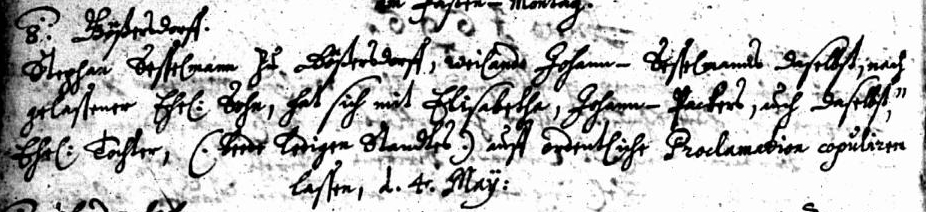 Fasten-Montag.
8. Bößersdorff.
Stephan Besselmann zu Bößersdorff, weilandt Johann Besselmanns daselbst, nach
gelassener Ehel: Sohn, hat sich mit Elisabetha, Johann Packers, auch daselbst,
Ehel: Tochter, (: beede ledigen Standtes :) auff ordentliche Proclamation copuliren
lassen, d. 4. Maÿ: